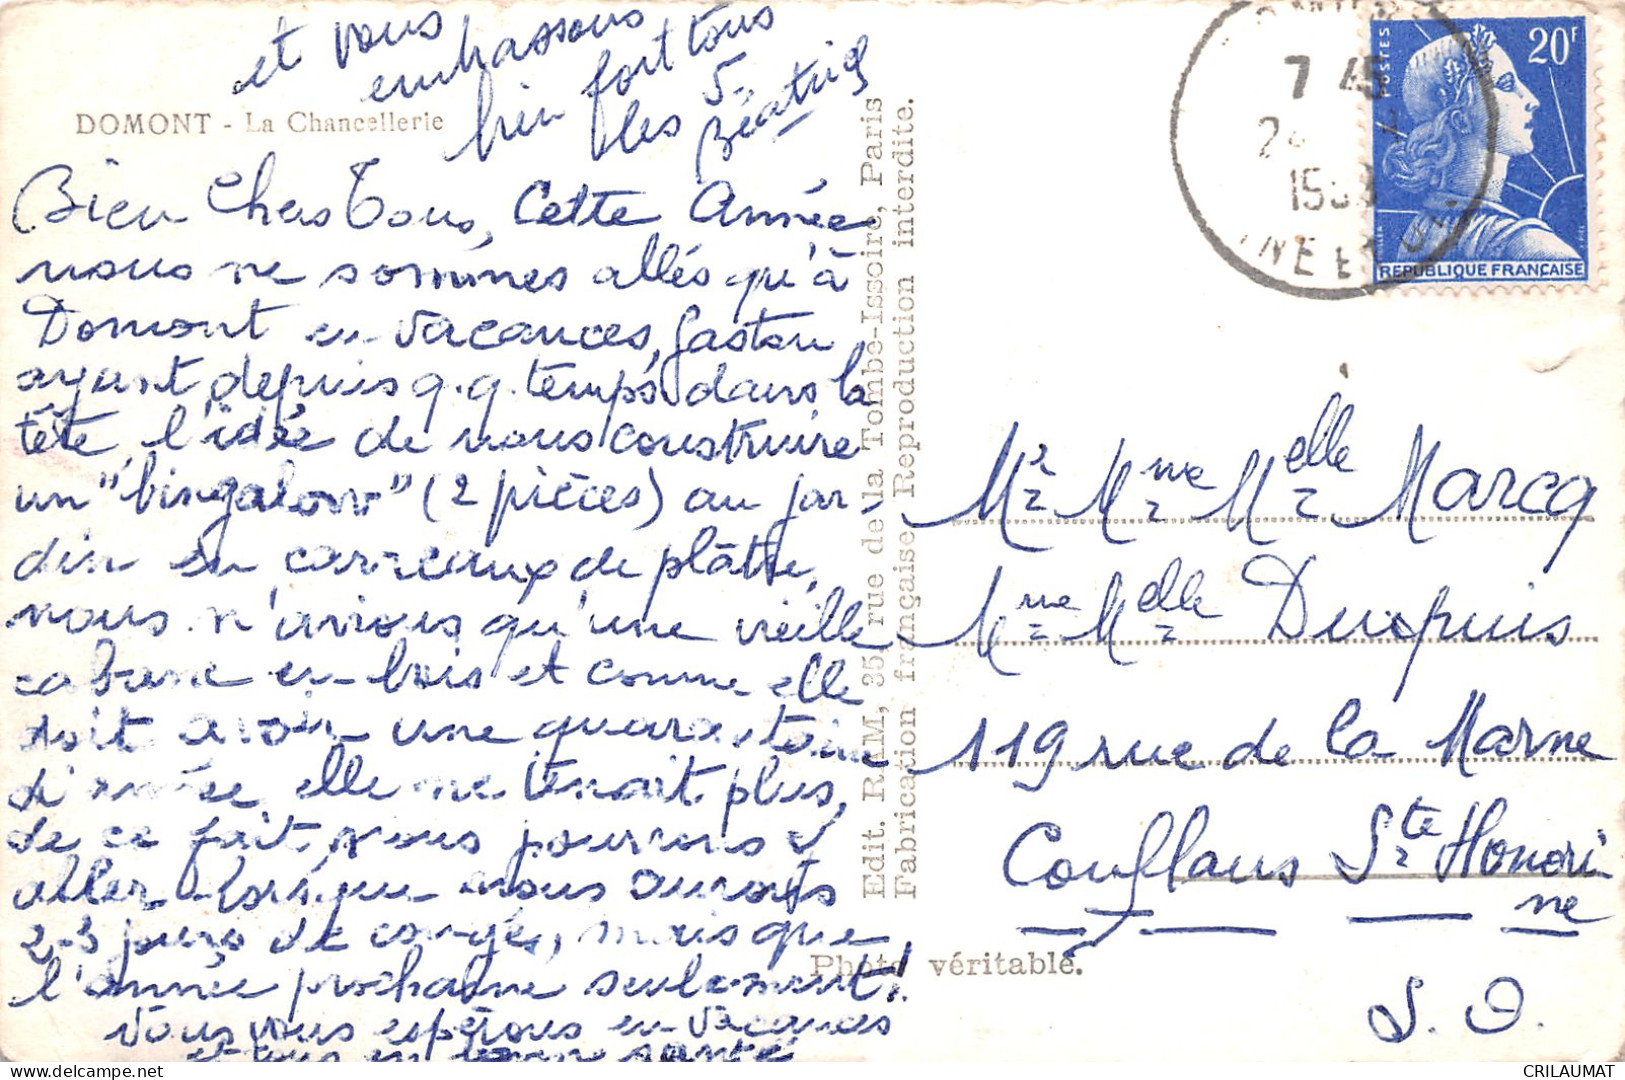 DOMONT - La Chancellerie
Bien Chers Tous, Cette Année
nous ne sommes allés qu'à
Domont en vacances, Gaston
ayant depuis q.q. temps dans la
tête l'idée de nous construire
un "bingalow" (2 pièces) au jar-
din en carreaux de plâtre,
nous n'avions qu'une vieille
cabane en bois et comme elle
doit avoir une quarantaine
d'année elle ne tenait plus,
de ce fait nous pourrons y
aller lorsque nous aurons
2-3 jours de congés, mais que
l'année prochaine seulement!
Nous vous espérons en vacances
et tous en bonne santé
et vous
embrassons
bien fort tous
les 5.
Béatrix
Edit. RAM, 35, rue de la Tombe-Issoire, Paris
Fabrication française Reproduction interdite.
Photo véritable.
7 45
24
INE ET OI
POSTES
20F
REPUBLIQUE FRANÇAISE
Mr Mme Melle Marcq
Mme Melle Dupuis
119 rue de la Marne
Conflans Ste Honori
ne
S. O.
CRILAUMAT